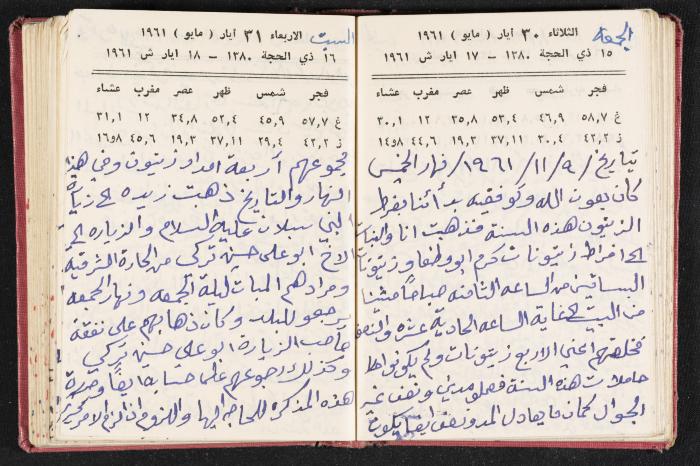 الجمعة
الثلاثاء ٣٠ أيار ( مايو ) ١٩٦١
١٥ ذي الحجة ١٣٨٠ — ١٧ ايار ش ١٩٦١
فجر شمس ظهر عصر مغرب عشاء
غ ٥٨,٧ ٤٦,٩ ٥٣,٤ ٣٥,٨ ١٢ ٣٠,١
ز ٤٢,٢ ٣٠,٤ ٣٧,١١ ١٩,٣ ٤٤,٦ ١٤و٨
بتاريخ / ٩ / ١١ / ١٩٦١ / نهار الخميس
كان بعون الله وتوفيقه بدأنا بفرط
الزيتون هذه السنة فذهبت انا والبنات
الى افراط زيتونات كرم ابو وزيتونات
البساتين من الساعه الثامنه صباحا مشينا
من البيت لغاية الساعه الحادية عشره والنصف
فخلصتهم اعني الاربع زيتونات ولم يكونوا
حاملات هذه السنة فعملو مدين ونصف غير
الجوال كمان ما يعادل المد ونصف ايضا يكون
السبت
الاربعاء ٣١ أيار ( مايو ) ١٩٦١
١٦ ذي الحجة ١٣٨٠ — ١٨ ايار ش ١٩٦١
فجر شمس ظهر عصر مغرب عشاء
غ ٥٧,٧ ٤٥,٩ ٥٢,٤ ٣٤,٨ ١٢ ٣١,١
ز ٤٢,٢ ٢٩,٤ ٣٧,١١ ١٩,٣ ٤٥,٦ ١٦و٨
مجموعهم أربعة امداد زيتون وفي هذا
النهار والتاريخ ذهبت زيده الى زيارة
النبي سبلان عليه السلام والزياره الى
الاخ ابو علي حسين تركي من الحارة الشرقية
ومرادهم المبات ليلة الجمعه ونهار الجمعه
يرجعو للبلد وكان ذهابهم على نفقة
صاحب الزيارة ابو علي حسين تركي
وكذلك رجوعهم على حسابه ايضا وحررة
هذه المذكره للحاجه اليها واللزوم اذ لزم الامر تحرير